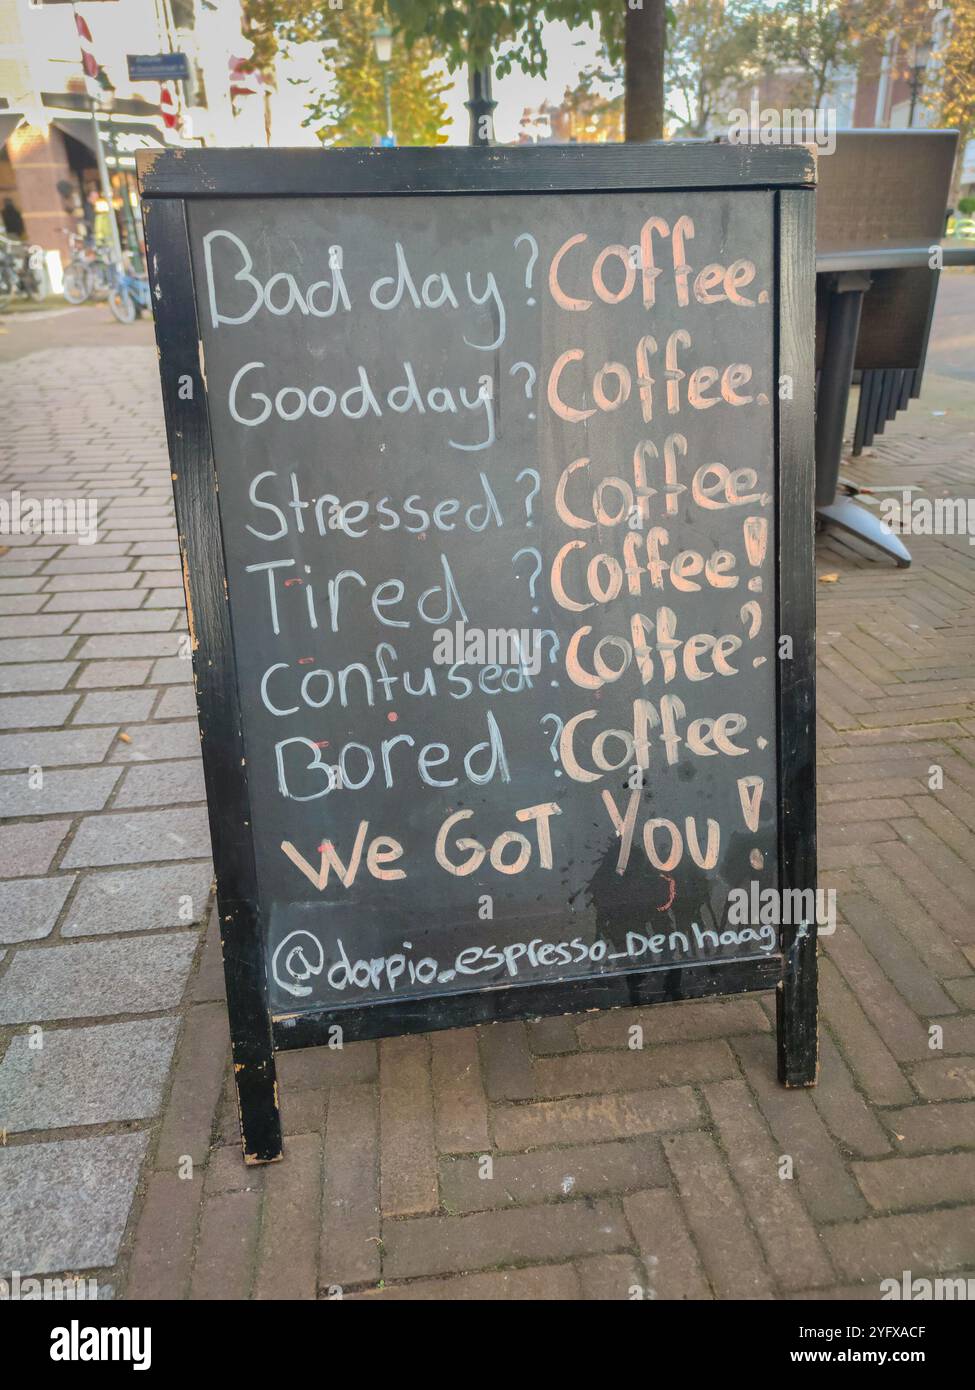 Bad day? Coffee.
Good day? Coffee.
Stressed? Coffee.
Tired? Coffee!
Confused? Coffee?
Bored? Coffee.
We GoT You!
@doppio_espresso_Denhaag
alamy
Image ID: 2YFXACF
www.alamy.com